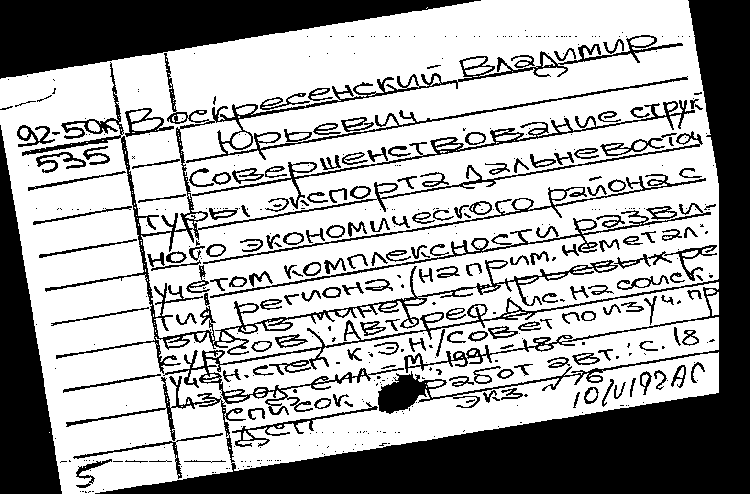 92-50к Воскресенский, Владимир
535 Юрьевич.
Совершенствование струк
туры экспорта Дальневосточ-
ного экономического района с
учетом комплексности разви-
тия региона: (на прим. неметал:
видов минер. сырьевых ре
сурсов): Автореф. дис. на соиск.
учен. степ. к.э.н. / Совет по изуч. пр
извод. сил. - М., 1991. - 18 с.
список работ авт.: с. 18.
ДСП экз. №76
10/IV192АС
5